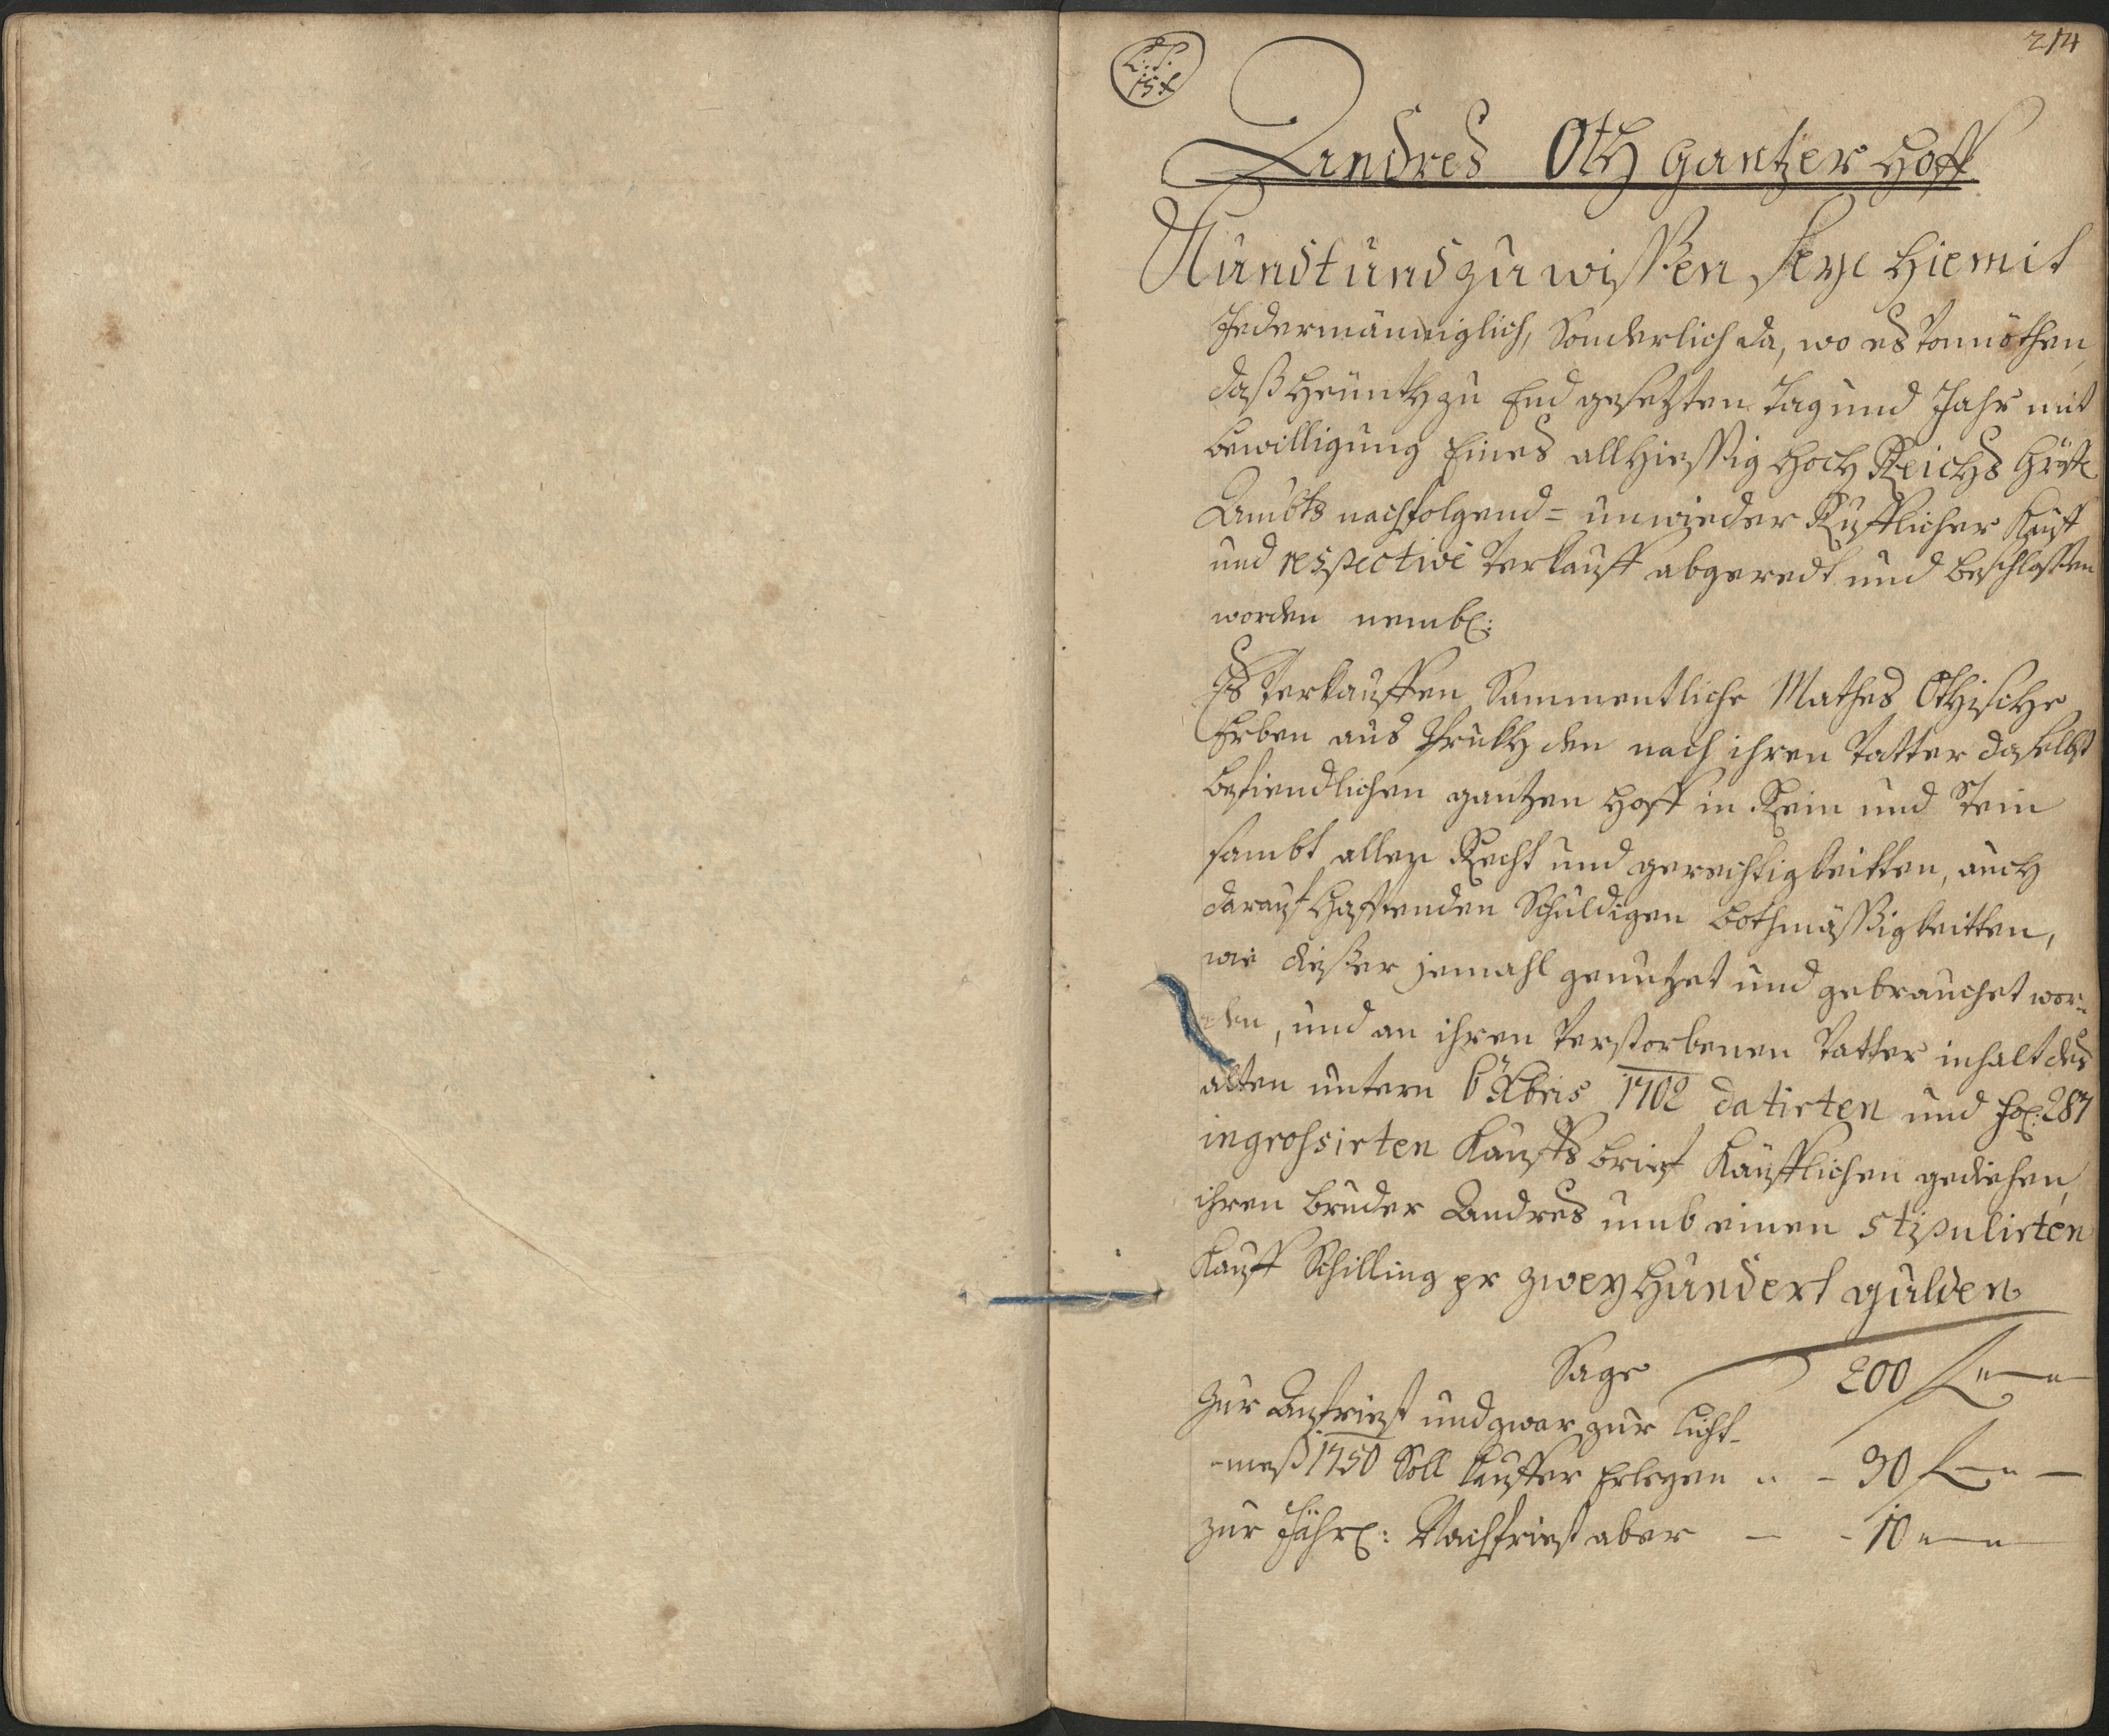 214
L: S:
Andres Oth gantzer Hoff
Kundt und zu wissen seye hiemit
Jedermänniglich, sonderlich da, wo es vonnöthen,
daß heünth zu End gesetzten Tag und Jahr mit
bewilligung Eines allhiessig Hoch Reichs
Ambts nachfolgend= unwieder Rufflicher Kauff
und respective Verkauff abgeredt und beschlossen
worden nembl:
Es Verkauffen Sammentliche Mathes Othische
Erben aus den nach ihren Vatter daselbst
befiendlichen gantzen Hoff in Rein und Stein
sambt allen Recht und gerechtigkeitten, auch
darauf hafftenden Schuldigen bothmässigkeitten,
wie dießer jemahl genutzet und gebrauchet wor¬
den, und an ihren Verstorbenen Vatter inhalt des
alten untern Xbris 1702 datirten und fol: 287
ingrossirten Kauffs brief Käufflichen gediehen,
ihren bruder Andres umb einen stipulirten
Kauff Schilling pr zweyhundert gulden
Sage 200 f
Zur Anfriest und zwar zur Licht¬
meß 1750 Soll Kauffer Erlegen 30 f
zur Jährl: Nachfriest aber 10